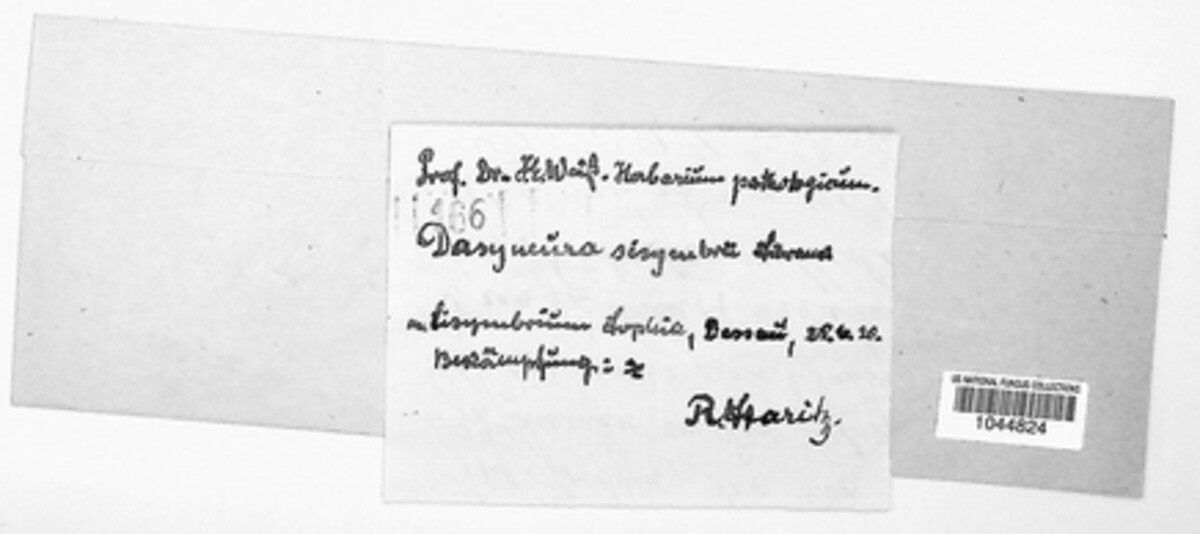 Prof. Dr. H. Wüß. Herbarium pathologicum.
166
Dasyneura sisymbrii
Sisymbrium Sophia, Dessau,
Bekämpfung:
R. Staritz.
US NATIONAL FUNGUS COLLECTIONS
1044824